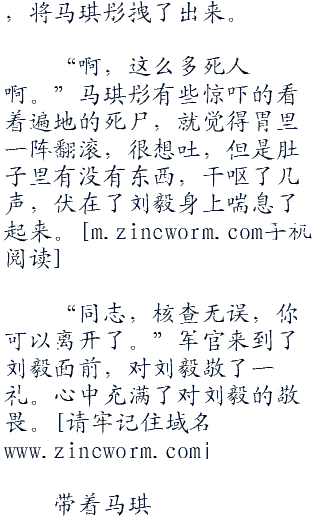 ，将马琪彤拽了出来。
“啊，这么多死人
啊。”马琪彤有些惊吓的看
着遍地的死尸，就觉得胃里
一阵翻滚，很想吐，但是肚
子里有没有东西，干呕了几
声，伏在了刘毅身上喘息了
起来。[m.zincworm.com手机
阅读]
“同志，核查无误，你
可以离开了。”军官来到了
刘毅面前，对刘毅敬了一
礼。心中充满了对刘毅的敬
畏。[请牢记住域名
www.zincworm.com]
带着马琪